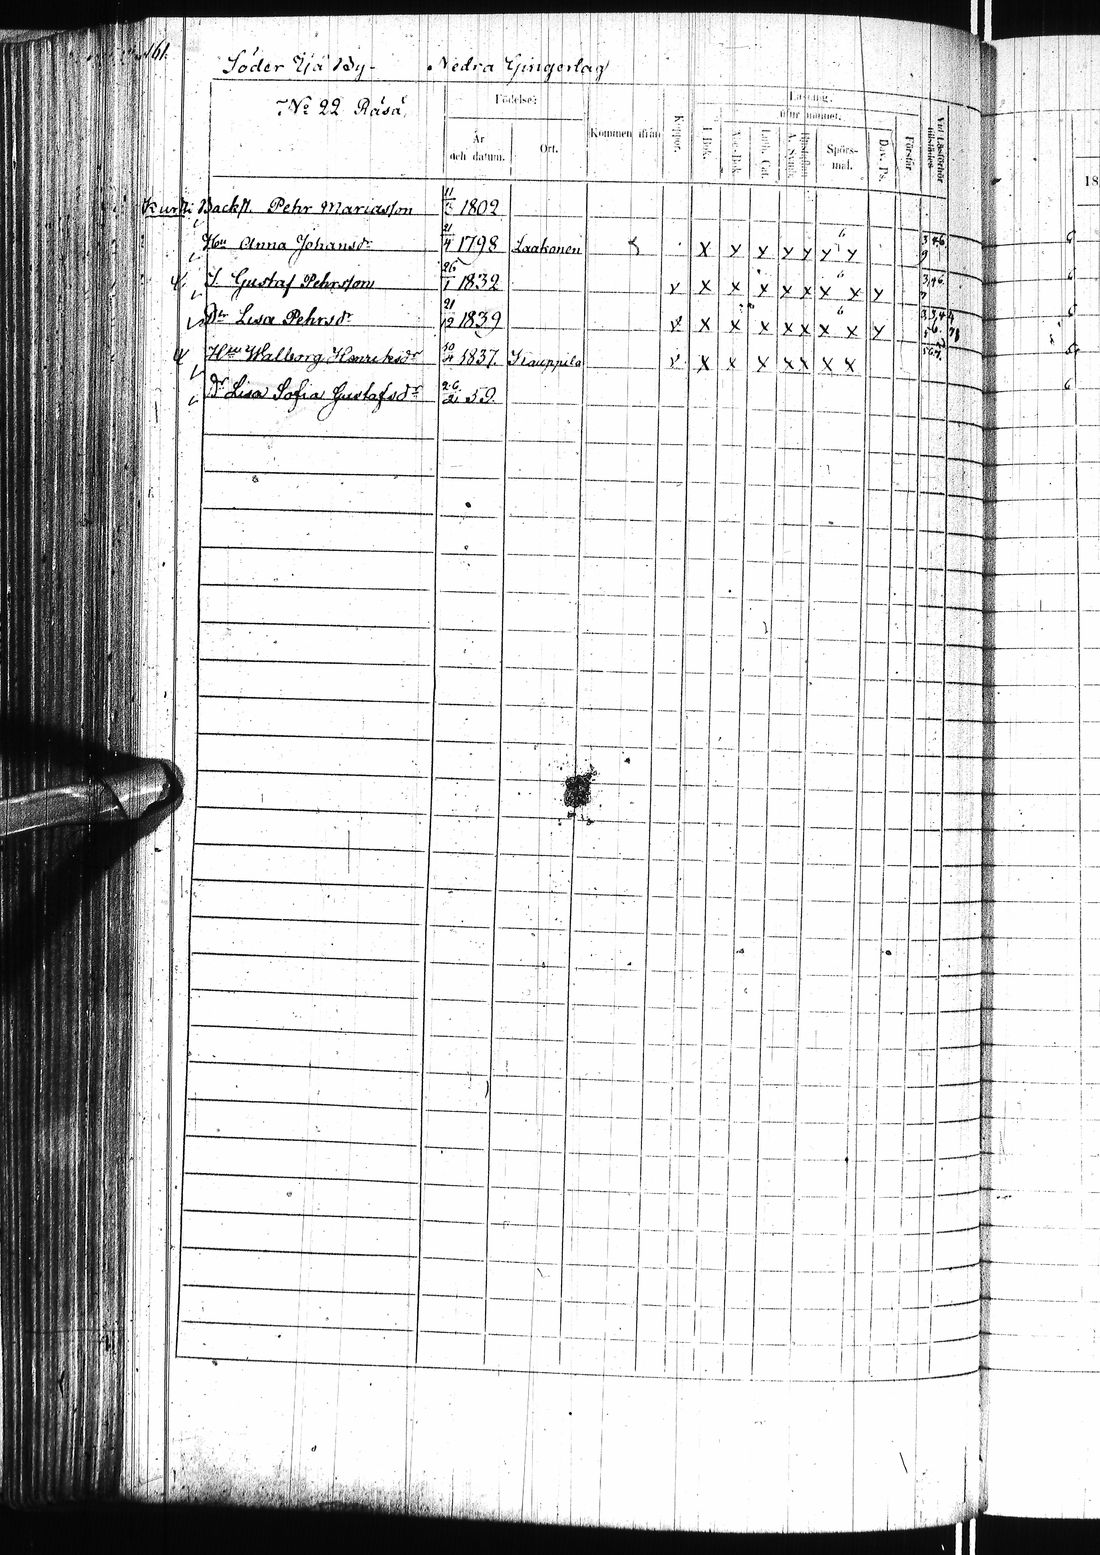 161.
Söder Ejä By- Nedra Gingerlag
No 22 Räsä.
Födelse:
År och datum.
Ort.
Kommen ifrån
Koppor.
Läsning.
utur minnet.
I Bok.
A-b-c-Bok
Luth. Cat.
Hustaflan
A. Symb.
Spörsmål.
Dav. Ps.
Förstår
Vid Läsförhör tillstädes
18
Kurki Backst. Pehr Mariasson 11/3 1802
Hu Anna Johansdr 21/4 1798 Laakonen x y y y y y y 346
S. Gustaf Pehrsson 26/1 1832 v x x x x x x x y 346. 7
Dr Lisa Pehrsdr 21/12 1839 v x x x x x x x y
Hu Walborg Henriksdr 10/4 1837. Kauppila v x x x x x x x 567.
Dr Lisa Sofia Gustafsdr 26/2 59.